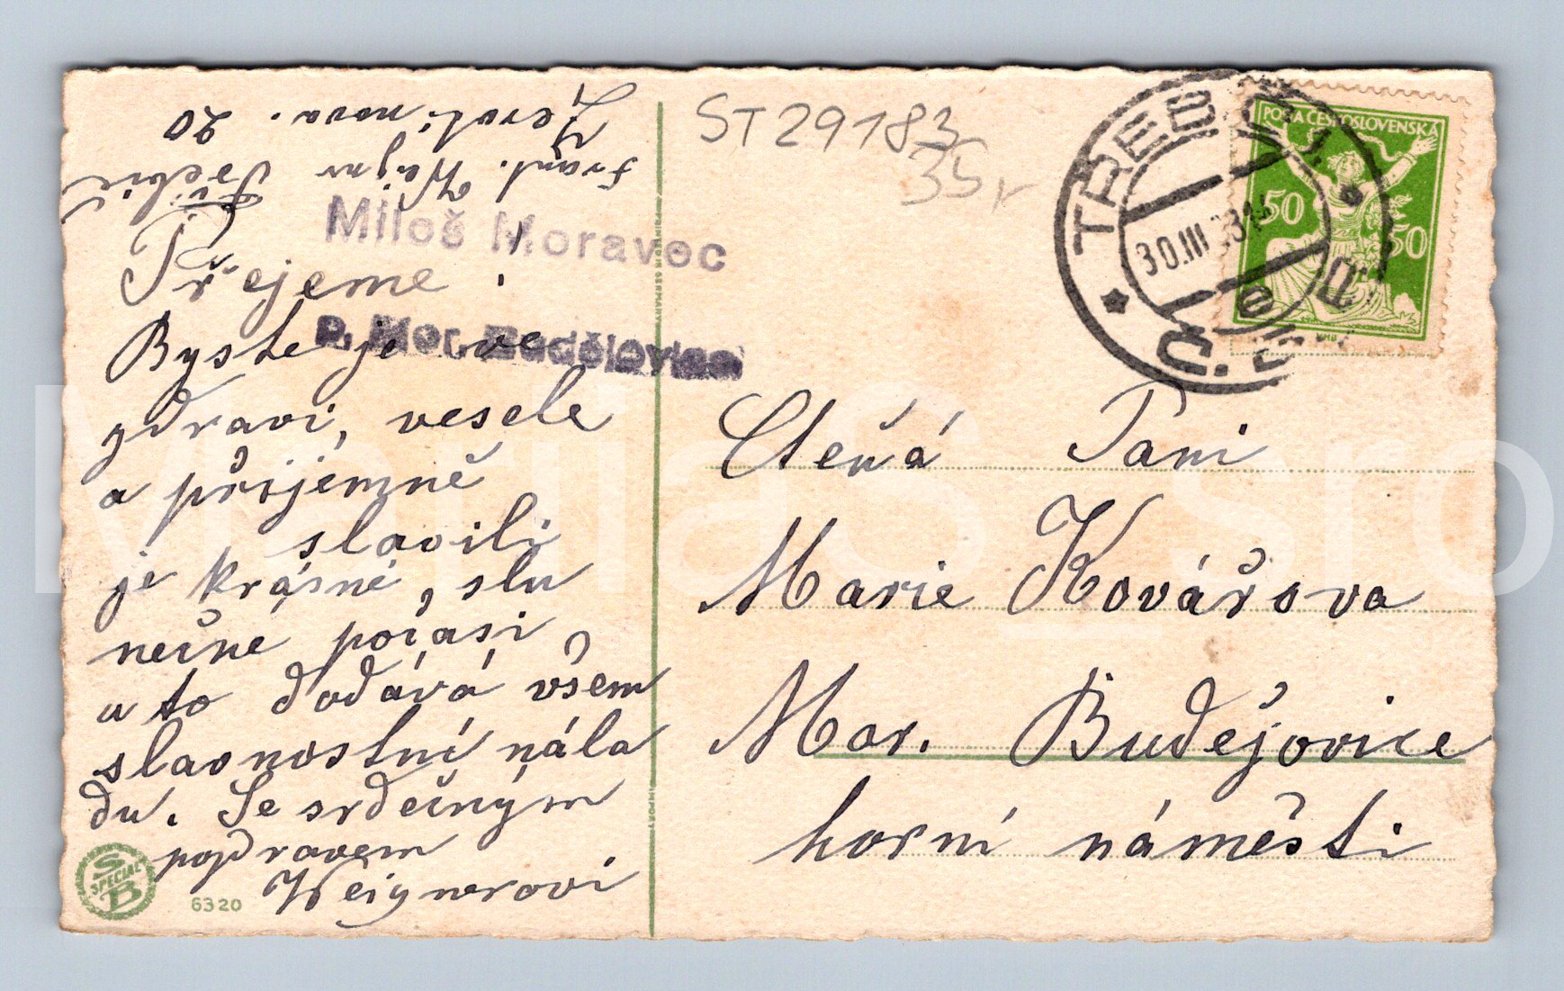 Frant. Wajnr
Žerotinova. 20
Třebíč
ST29183
35,-
Miloš Moravec
P. Mor. Budějovice
TŘEB
30.III
POŠTA ČESKOSLOVENSKÁ
50 50
Přejeme!
Byste je ve
zdraví, vesele
a příjemně
slavili
je krásné, slu
nečné počasí,
a to dodává všem
slavnostní nála
du. Se srdečným
pozdravem
Weignerovi
Ctěná Paní
Marie Kovářova
Mor. Budějovice
horní náměstí
SB
SPECIAL
6320
IMPORTÉ